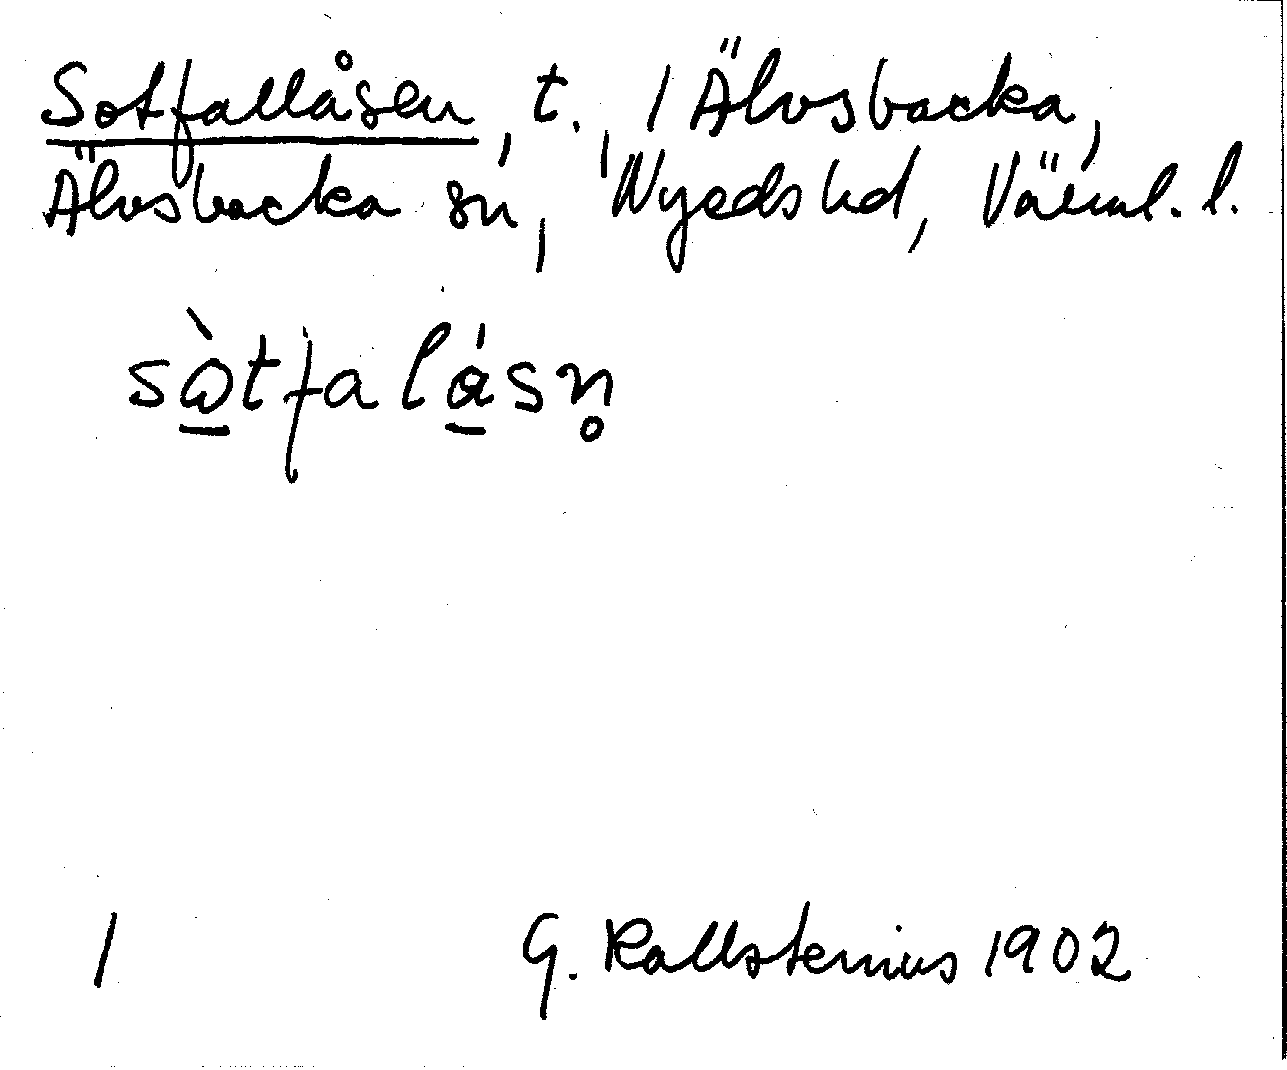 Sotfallåsen, t., 1 Älvsbacka,
Älvsbacka sn, Nyeds hd, Värml. l.
sò̲tfalá̲sn̥
1 G. Kallstenius 1902